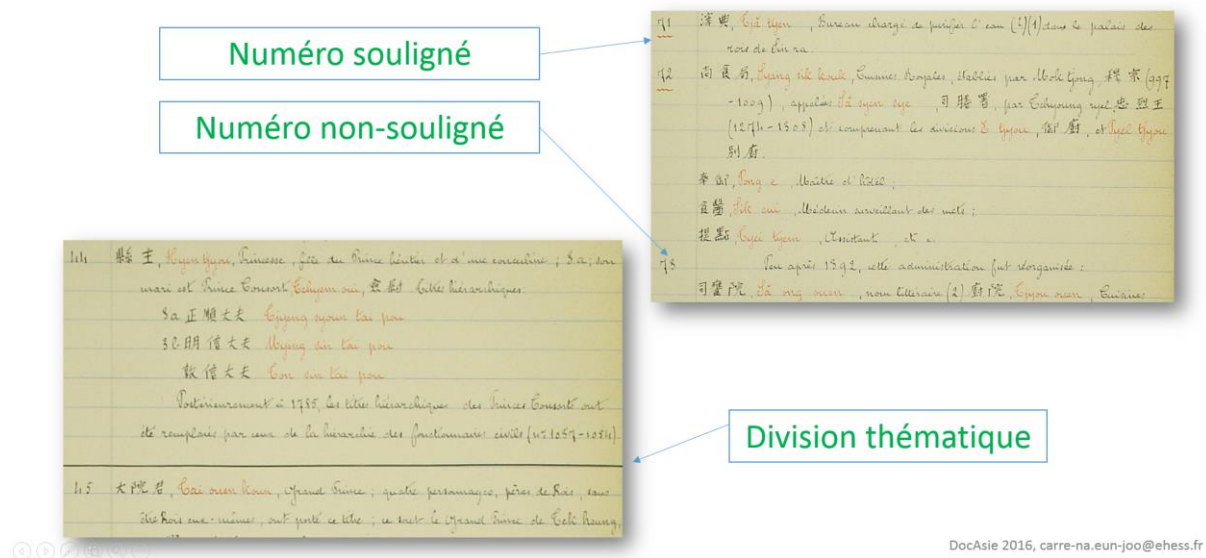 Numéro souligné
Numéro non-souligné
71 典, Tjā tyen, Bureau chargé de purifier l'eau (2)(1) dans le palais des
rois de Sin ra.
72 尙食局, Syang sik kouk, Cuisines Royales, établies par Mok tjong, 穆宗 (997
-1009), appelées Sā syen sye, 司膳署, par Tchyoung ryel, 忠烈王
(1274-1308) et comprenant les divisions E tjyou, 御廚, et Pyel tjyou
別廚.
奉御, Pong e, Maître d'hôtel;
食醫, Sik eui, Médecin surveillant des mets;
提點, Tyei tyem, Assistant, etc.
73 Peu après 1392, cette administration fut réorganisée:
司饔院, Sā ong ouen, nom littéraire (2) 廚院, Tjyou ouen, Cuisines
44 縣主, Hyen tjyou, Princesse, fille du Prince héritier et d'une concubine; 3a; son
mari est Prince Consort, Tchyem oui, 僉尉. Titres hiérarchiques:
3a 正順大夫 Tjyeng syoun tai pou
3b 明信大夫 Myeng sin tai pou
敦信大夫 Ton sin tai pou
Postérieurement à 1785, les titres hiérarchiques des Princes Consorts ont
été remplacés par ceux de la hiérarchie des fonctionnaires civils (nos 1057-1084).
Division thématique
45 大院君, Tai ouen koun, Grand Prince; quatre personnages, pères de Rois, sans
être Rois eux-mêmes, ont porté ce titre; ce sont le Grand Prince de Tek heung,
DocAsie 2016, carre-na.eun-joo@ehess.fr